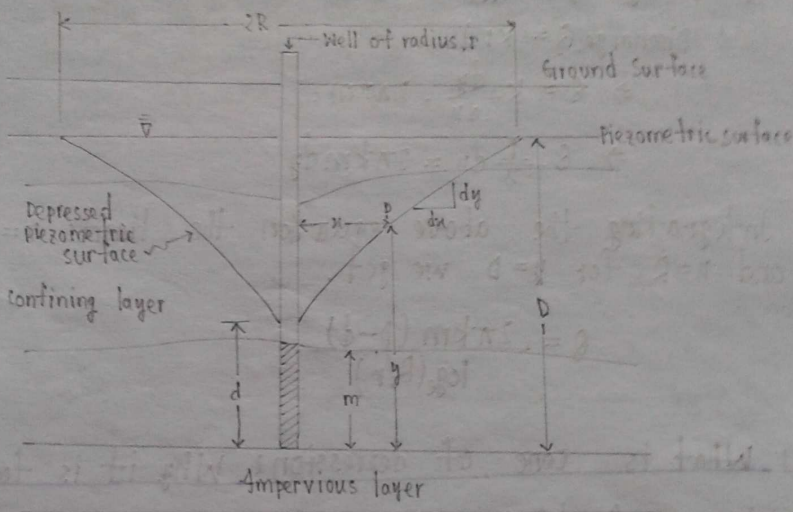 2R
Well of radius, r
Ground Surface
Piezometric surface
dy
dx
Depressed
piezometric
surface
x
P
Confining layer
D
d
m
y
Ampervious layer